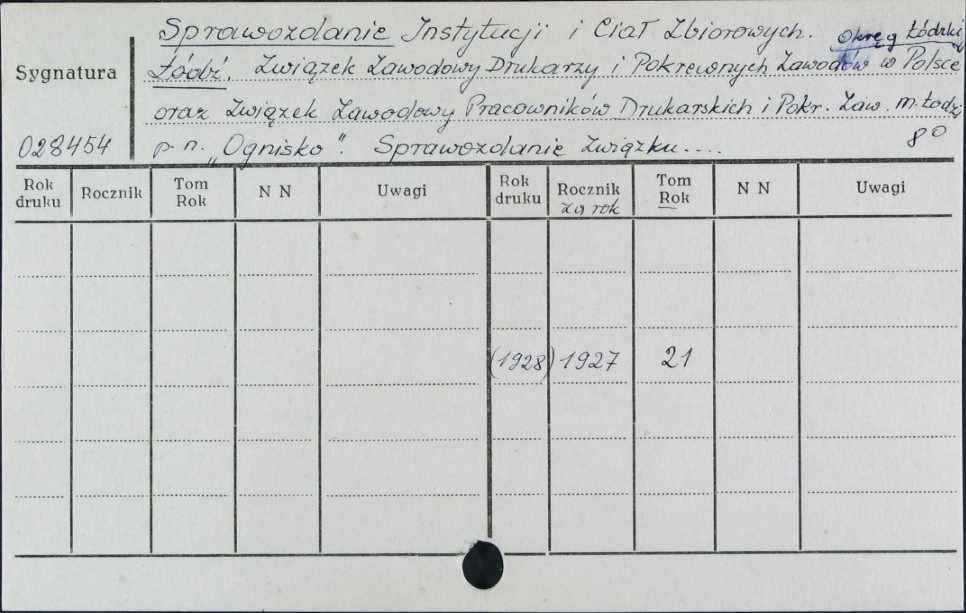 Sprawozdanie Instytucji i Ciał Zbiorowych. Okręg Łódzki
Sygnatura
Łódź. Związek Zawodowy Drukarzy i Pokrewnych Zawodów w Polsce
oraz Związek Zawodowy Pracowników Drukarskich i Pokr. Zaw. m. Łodzi
028454 p n. „Ognisko". Sprawozdanie Związku.... 8°
Rok druku Rocznik Tom Rok N N Uwagi Rok druku Rocznik za rok Tom Rok N N Uwagi
(1928) 1927 21